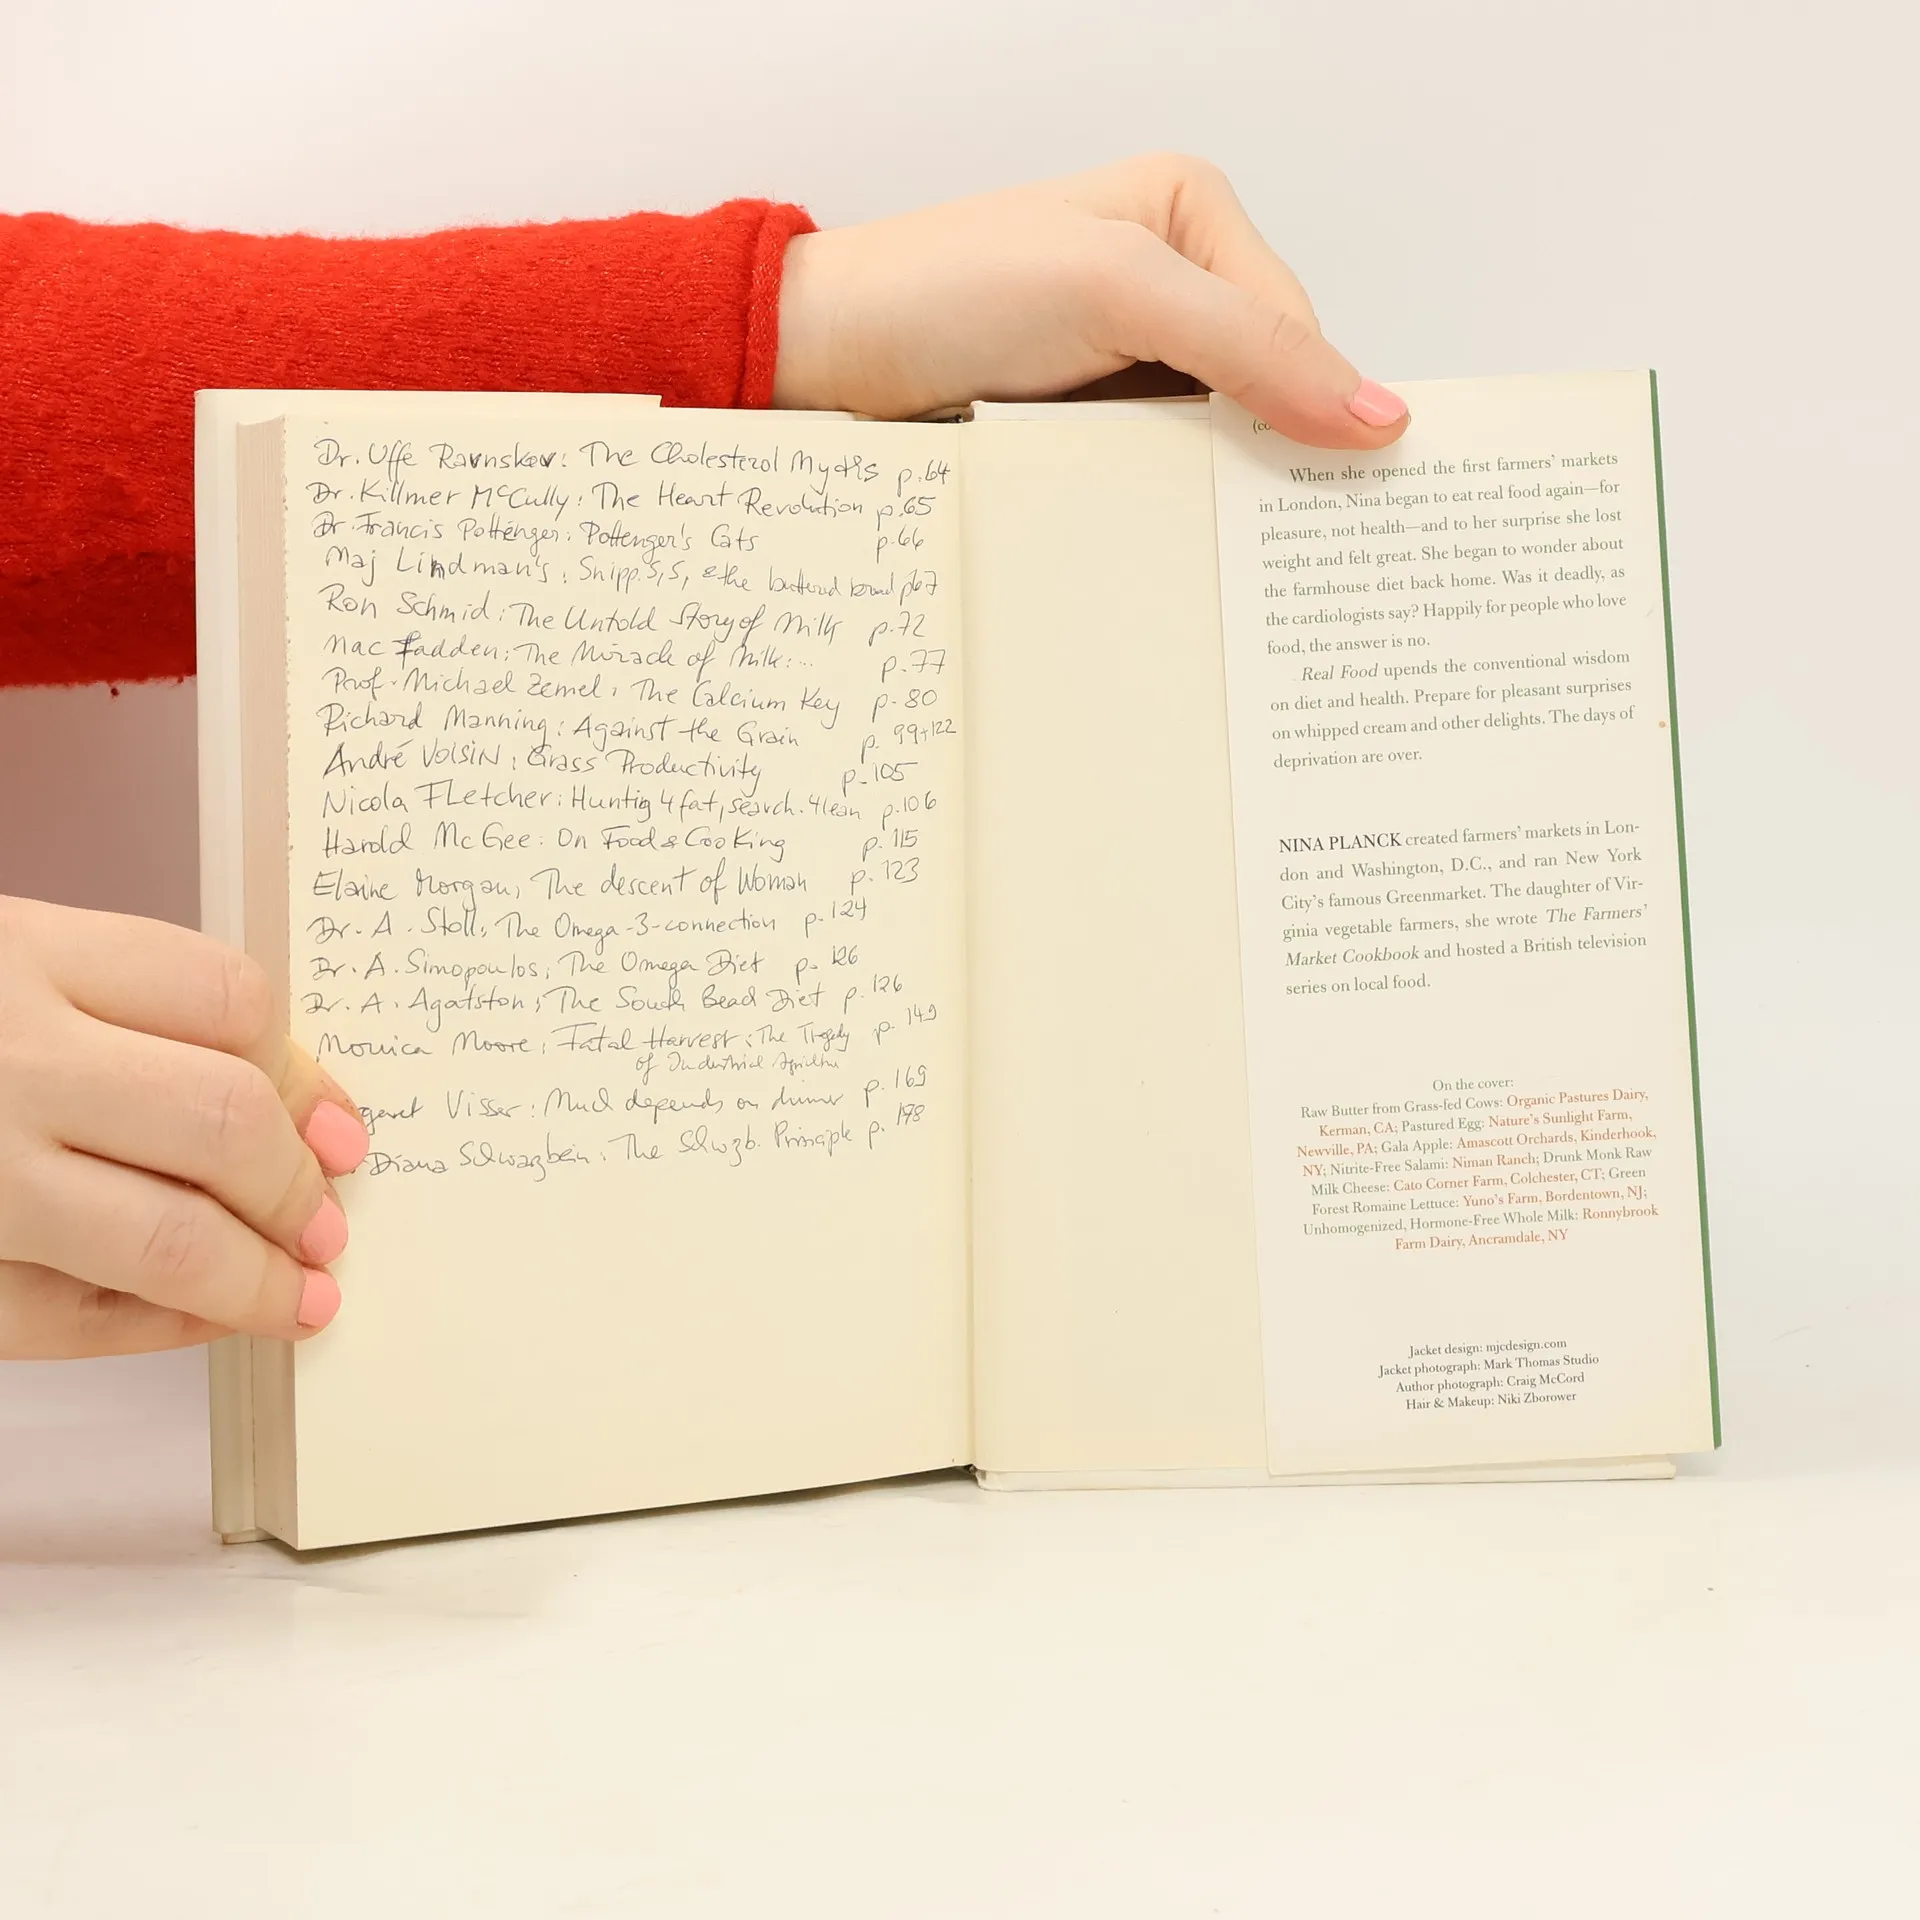 Dr. Uffe Ravnskov: The Cholesterol Myths p.64
Dr. Killmer McCully: The Heart Revolution p.65
Dr. Francis Pottenger: Pottenger's Cats p.66
Maj Lindman's: Snipp, S, S, & the buttered bread p67
Ron Schmid: The Untold Story of Milk p.72
Mac Fadden: The Miracle of Milk:... p.77
Prof. Michael Zemel: The Calcium Key p.80
Richard Manning: Against the Grain p. 99+122
André VOISIN: Grass Productivity p.105
Nicola FLetcher: Huntig 4 fat, search. 4 lean p.106
Harold McGee: On Food & Cooking p. 115
Elaine Morgan, The descent of Woman p. 123
Dr. A. Stoll, The Omega-3-connection p. 124
Dr. A. Simopoulos; The Omega Diet p. 126
Dr. A. Agatston; The South Beach Diet p. 126
Monica Moore; Fatal Harvest: The Tragedy p. 149
of Industrial Agriculture
garet Visser: Much depends on dinner p. 169
Diana Schwarzbein: The Schwzb. Principle p. 178
(co
When she opened the first farmers' markets
in London, Nina began to eat real food again—for
pleasure, not health—and to her surprise she lost
weight and felt great. She began to wonder about
the farmhouse diet back home. Was it deadly, as
the cardiologists say? Happily for people who love
food, the answer is no.
Real Food upends the conventional wisdom
on diet and health. Prepare for pleasant surprises
on whipped cream and other delights. The days of
deprivation are over.
NINA PLANCK created farmers' markets in Lon-
don and Washington, D.C., and ran New York
City's famous Greenmarket. The daughter of Vir-
ginia vegetable farmers, she wrote The Farmers'
Market Cookbook and hosted a British television
series on local food.
On the cover:
Raw Butter from Grass-fed Cows: Organic Pastures Dairy,
Kerman, CA; Pastured Egg: Nature's Sunlight Farm,
Newville, PA; Gala Apple: Amascott Orchards, Kinderhook,
NY; Nitrite-Free Salami: Niman Ranch; Drunk Monk Raw
Milk Cheese: Cato Corner Farm, Colchester, CT; Green
Forest Romaine Lettuce: Yuno's Farm, Bordentown, NJ;
Unhomogenized, Hormone-Free Whole Milk: Ronnybrook
Farm Dairy, Ancramdale, NY
Jacket design: mjcdesign.com
Jacket photograph: Mark Thomas Studio
Author photograph: Craig McCord
Hair & Makeup: Niki Zborower